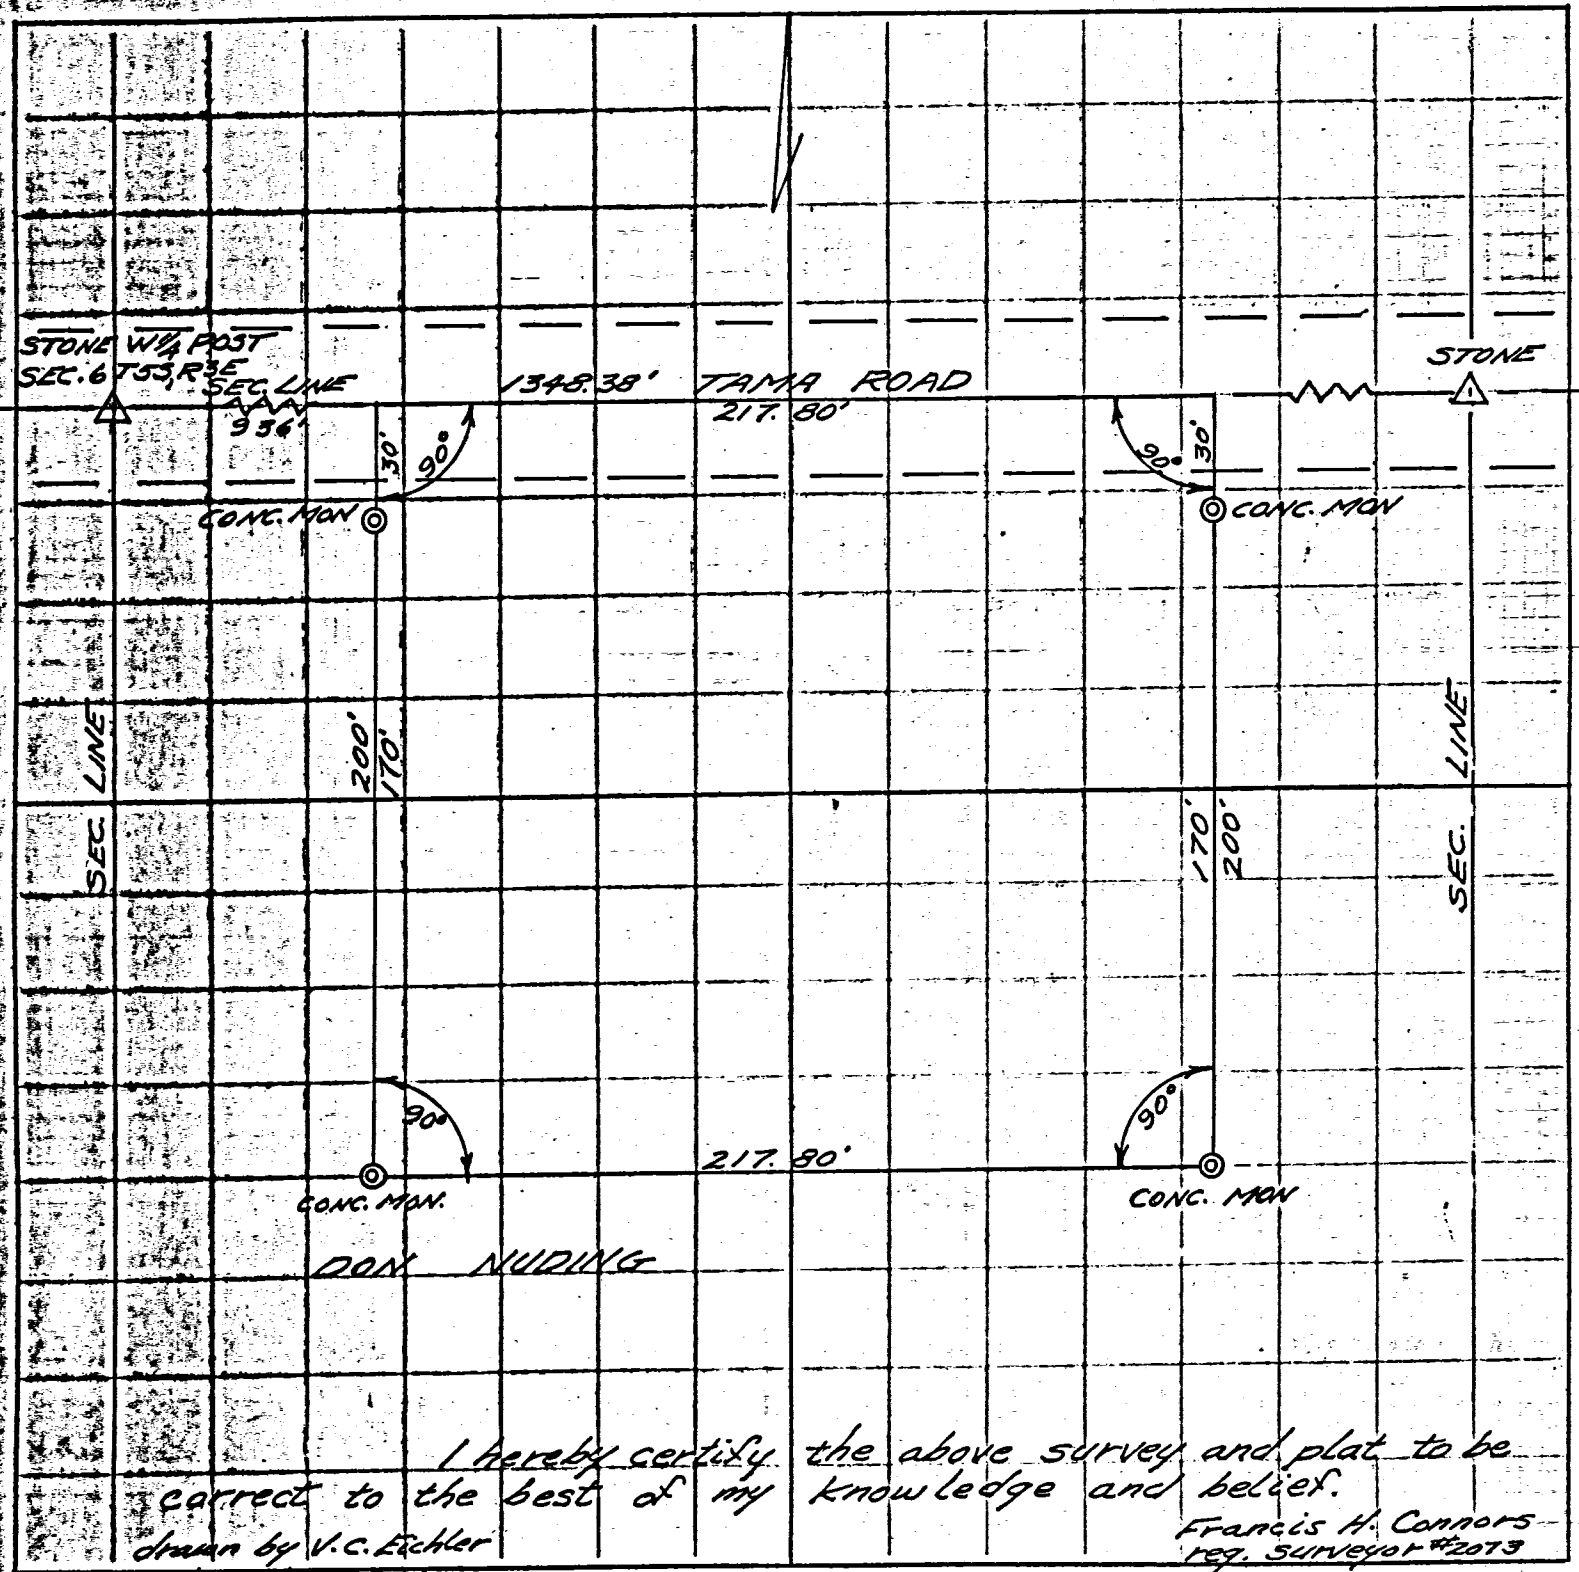 STONE W 1/4 POST
SEC. 6 T5S, R3E
SEC. LINE
936'
1348.38' TAMA ROAD
217.80'
STONE
30'
90°
90°
30'
CONC. MON
CONC. MON
SEC. LINE
200'
170'
170'
200'
SEC. LINE
90°
90°
217.80'
CONC. MON.
CONC. MON
DON NUDING
I hereby certify the above survey and plat to be
correct to the best of my knowledge and belief.
drawn by V.C. Eichler
Francis H. Connors
reg. surveyor #2073